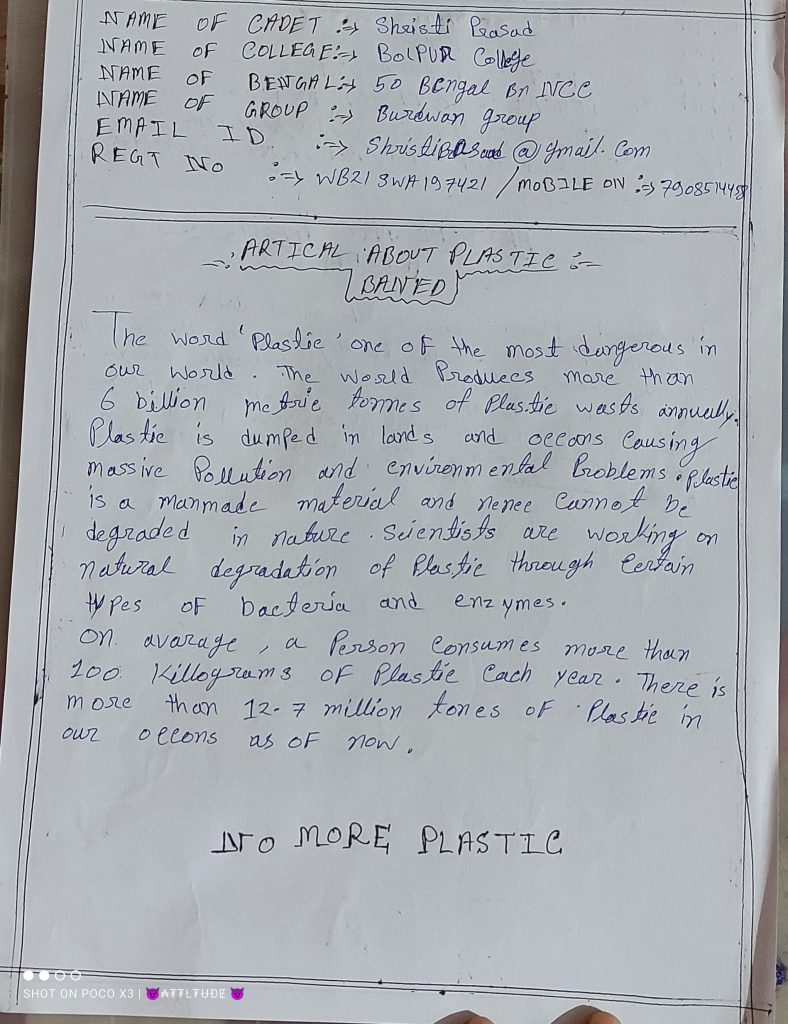 NAME OF CADET :→ Shristi Prasad
NAME OF COLLEGE:→ BOLPUR College
NAME OF BENGAL:→ 50 BEngal Bn NCC
NAME OF GROUP :→ Burdwan group
EMAIL ID :→ @gmail.com
REGT No :→ WB21SWA197421 / MOBILE ON :→
ARTICAL ABOUT PLASTIC
BANED
The word 'Plastic' one of the most dangerous in
our world. The world Produces more than
6 billion metric tonnes of Plastic wasts annually.
Plastic is dumped in lands and occans Causing
massive Pollution and environmental Problems. Plastic
is a manmade material and nence Cannot be
degraded in nature. Scientists are working on
natural degradation of Plastic through Certain
types of bacteria and enzymes.
On avarage, a Person Consumes more than
100 Killograms of Plastic Each year. There is
more than 12.7 million tones of Plastic in
our occons as of now.
NO MORE PLASTIC
SHOT ON POCO X3 | 😈ATTLTUDE 😈